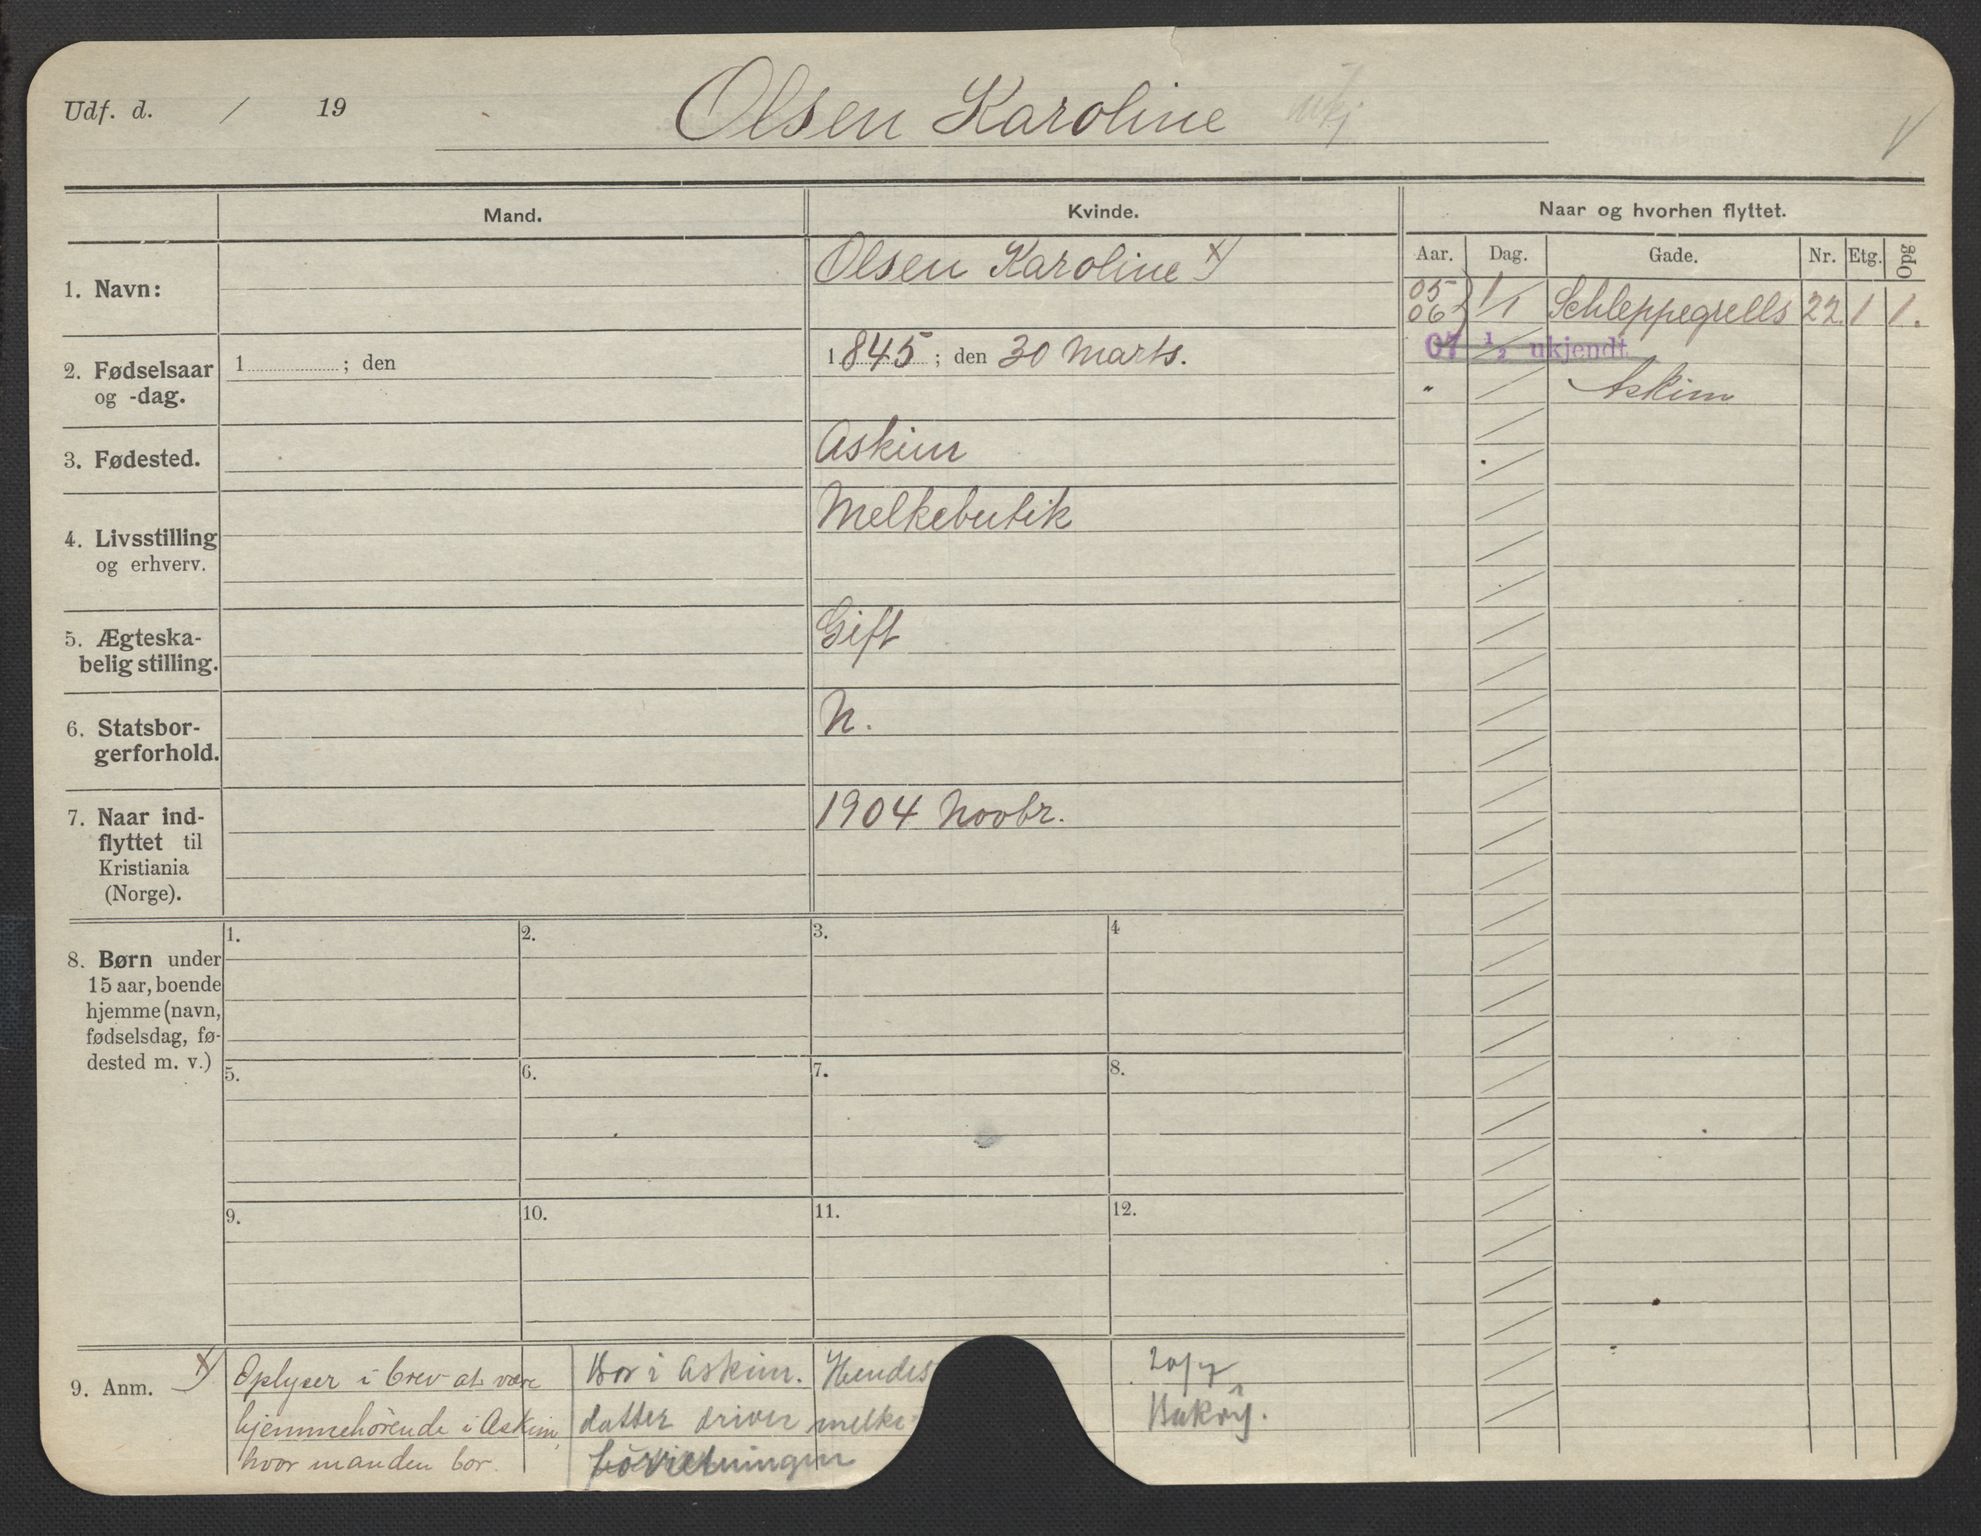 Udf. d. / 19
Olsen Karoline ukj
Mand.
Kvinde.
Naar og hvorhen flyttet.
Aar. Dag. Gade. Nr. Etg. Opg
1. Navn:
Olsen Karoline x)
05
06 } 1/1 Schleppegrells 22 1 1.
07 1/2 ukjendt
" / Askim
2. Fødselsaar
og -dag.
1 ; den
1845 ; den 30 Marts.
3. Fødested.
Askim
4. Livsstilling
og erhverv.
Melkebutik
5. Ægteska-
belig stilling.
Gift
6. Statsbor-
gerforhold.
N.
7. Naar ind-
flyttet til
Kristiania
(Norge).
1904 Novbr.
8. Børn under
15 aar, boende
hjemme (navn,
fødselsdag, fø-
dested m. v.)
1. 2. 3. 4
5. 6. 7. 8.
9. 10. 11. 12.
9. Anm. x)
Oplyser i brev at være
hjemmehørende i Askim,
hvor manden bor.
Bor i Askim. Hendes
datter driver melke
forretningen
20/7